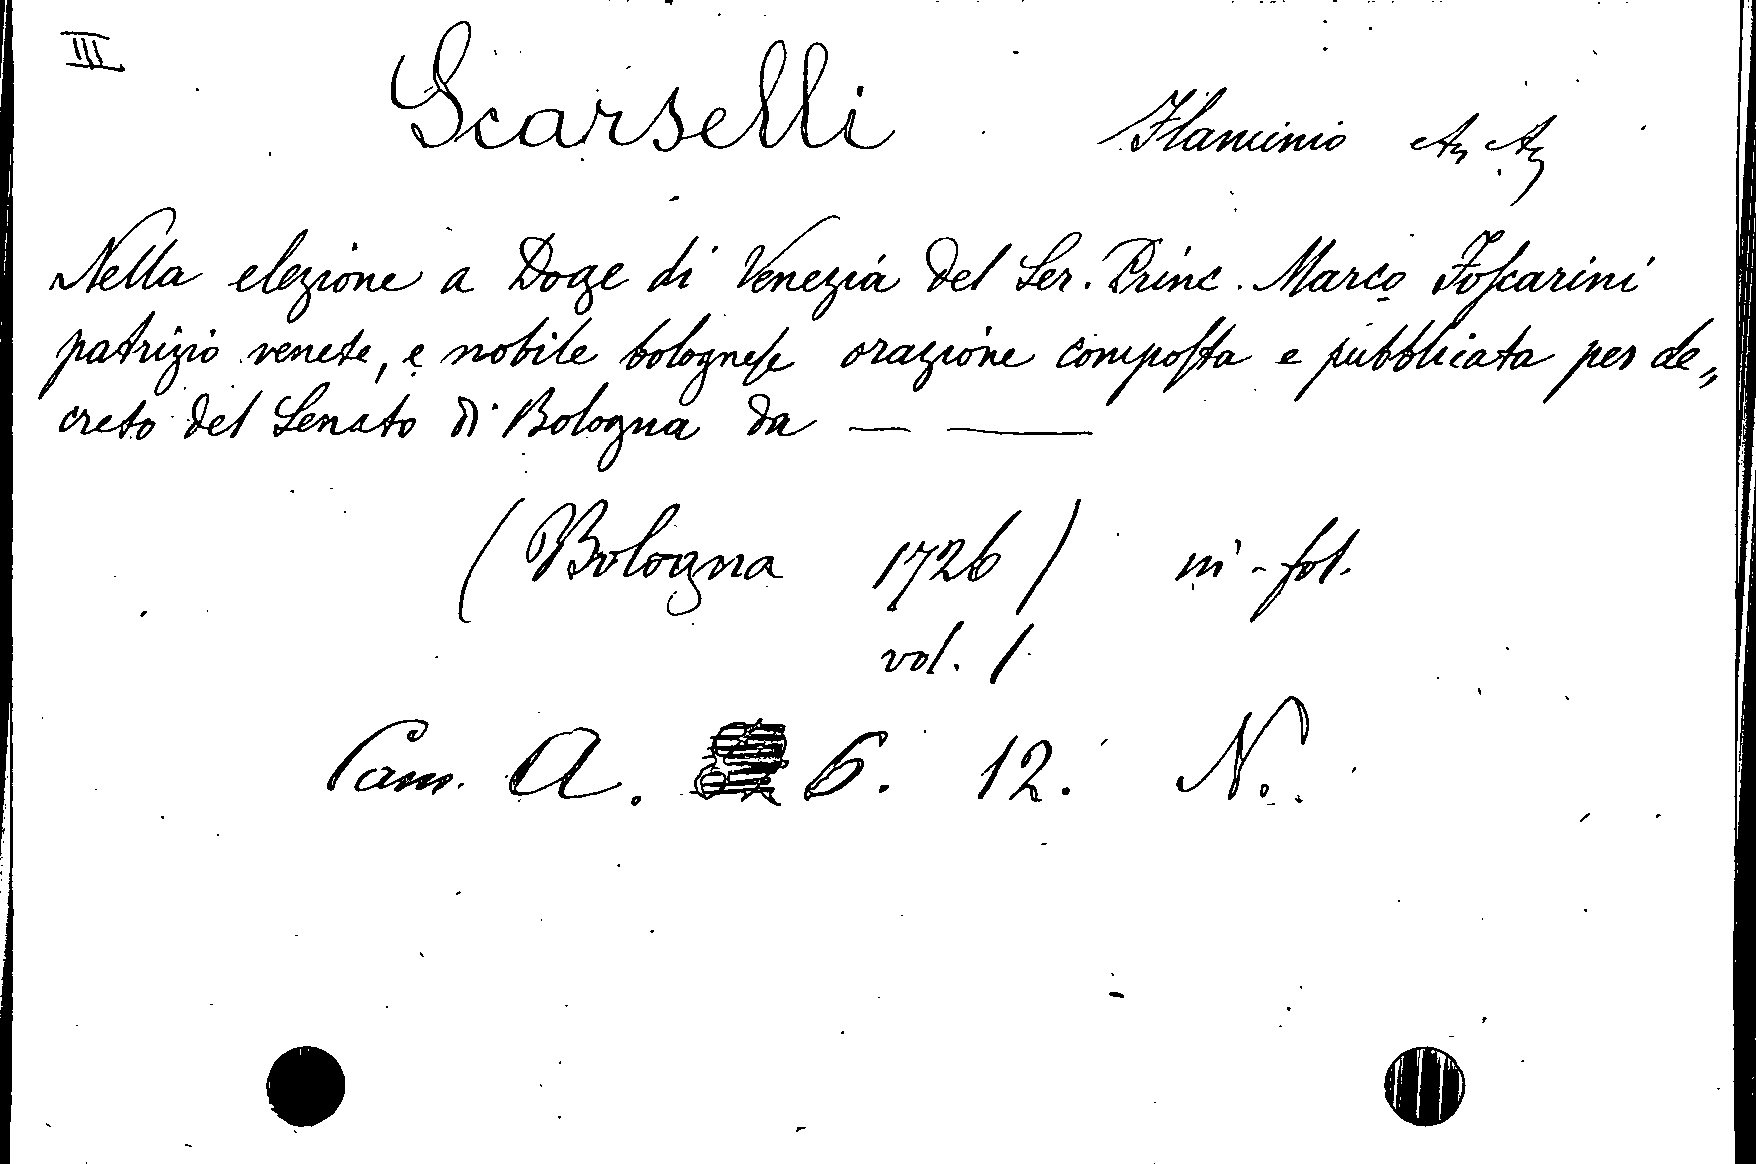 III
Scarselli Flaminio
Nella elezione a Doge di Venezia del Ser. Princ. Marco Foscarini
patrizio venete, e nobile bolognese orazione composta e pubblicata per de„
creto del Senato di Bologna da — ——
(Bologna 1726) in-fol.
vol. 1
Cam. A. 6. 12. N.